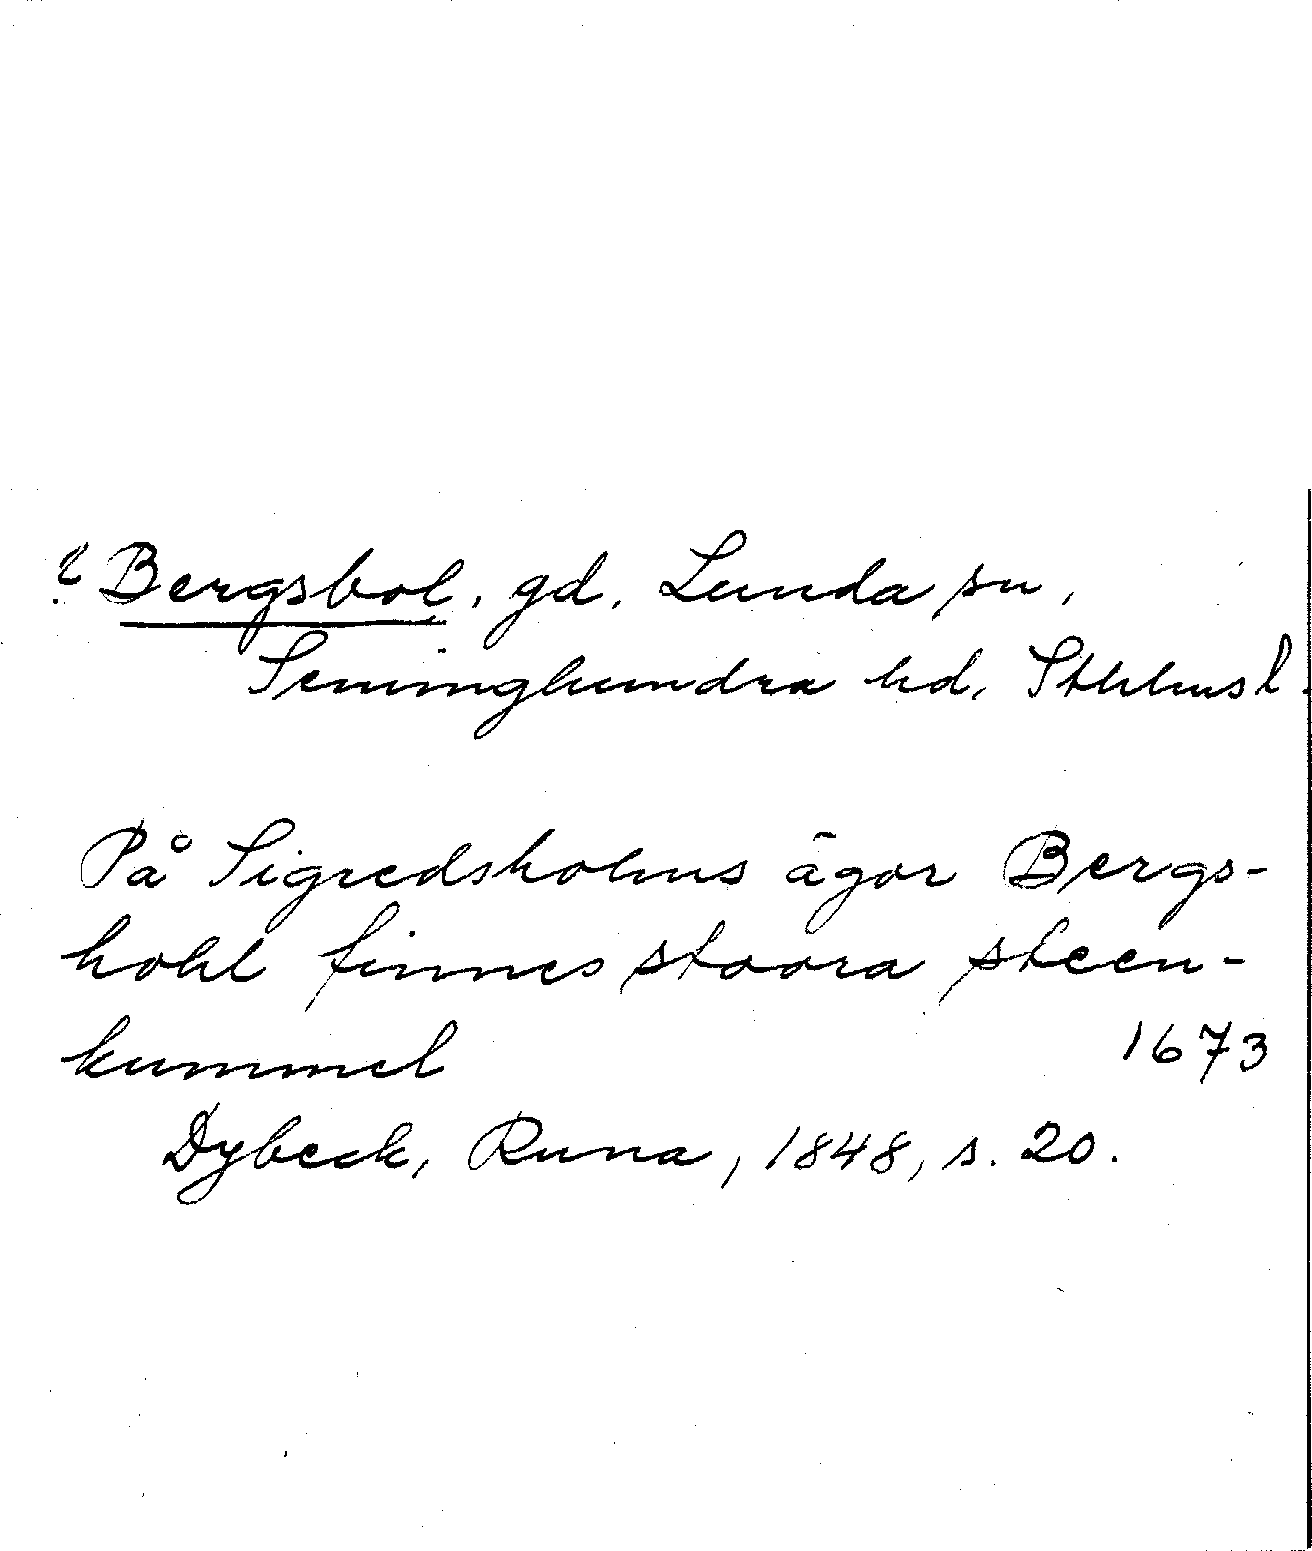 ? Bergsbol, gd. Lunda sn,
Seminghundra hd, Sthlms l.
På Sigredsholms ägor Bergs-
hohl finnes stoora steen-
kummel 1673
Dybeck, Runa, 1848, s. 20.